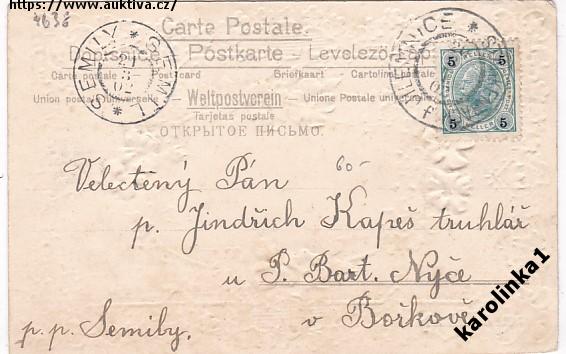 https://www.auktiva.cz/
4636
Carte Postale.
Postkarte - Levelező-
Carte postale
Postcard
Briefkaart
Cartolina postale
Union postale universelle
Weltpostverein - Unione Postale universale
Tarjetas postale
ОТКРЫТОЕ ПИСЬМО.
SEMILY * SEMIL *
5 5
5 5
60-
Velectěný Pán
p. Jindřich Kapeš truhlář
u P. Bart. Nyče
v Bořkově
p. p. Semily.
karolinka1